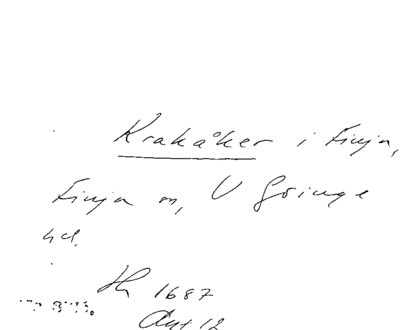 Krakåker i Finja,
Finja sn, V Göinge
hd.
Jb 1687
Avt 12